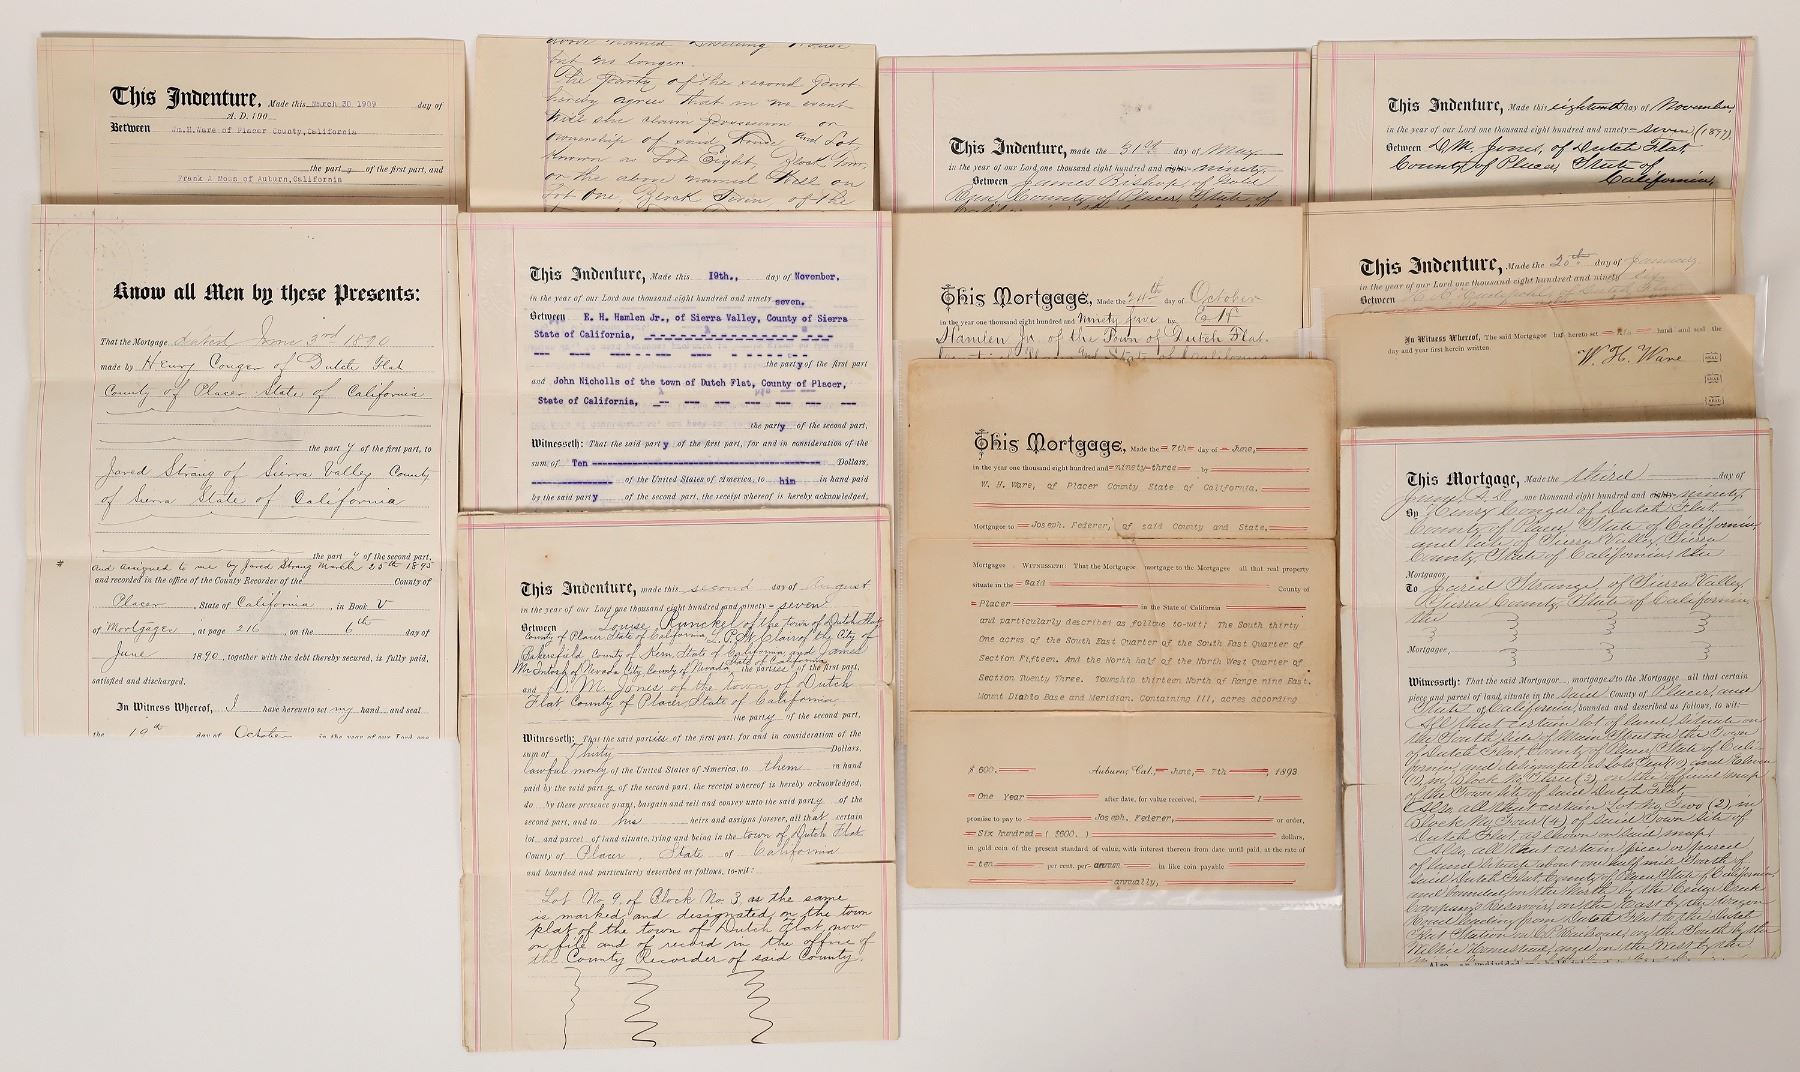 This Indenture, Made this March 30 1909 day of
A.D. 190
Between Wm.H.Ware of Placer County,California
the party of the first part, and
Frank A Moss of Auburn,California
above named Dwelling House
but no longer.
The party of the second part
hereby agrees that in no event
will she claim possession or
ownership of said House and Lot
known as Lot Eight, Block Four,
or the above named Well on
Lot One, Block Seven, of the
This Indenture, made the 31st day of May
in the year of our Lord one thousand eight hundred and eighty ninety,
Between James Bishop, of Gold
Run, County of Placer, State of
This Indenture, Made this eighteenth day of November,
in the year of our Lord one thousand eight hundred and ninety-seven (1897)
Between D.M. Jones, of Dutch Flat,
County of Placer, State of
California,
Know all Men by these Presents:
That the Mortgage dated June 3rd 1890
made by Henry Conger of Dutch Flat
County of Placer State of California
the part y of the first part, to
Jared Strang of Sierra Valley County
of Sierra State of California
the part y of the second part,
and assigned to me by Jared Strang March 25th 1895
and recorded in the office of the County Recorder of the County of
Placer, State of California, in Book V
of Mortgages, at page 216, on the 6th day of
June 1890, together with the debt thereby secured, is fully paid,
satisfied and discharged.
In Witness Whereof, I have hereunto set my hand and seal
the 19th day of October in the year of our Lord one
This Indenture, Made this 19th., day of November,
in the year of our Lord one thousand eight hundred and ninety seven.
Between E. H. Hamlen Jr., of Sierra Valley, County of Sierra
State of California,
the party of the first part
and John Nicholls of the town of Dutch Flat, County of Placer,
State of California,
the party of the second part,
Witnesseth: That the said party of the first part, for and in consideration of the
sum of Ten Dollars,
of the United States of America, to him in hand paid
by the said party of the second part, the receipt whereof is hereby acknowledged,
This Mortgage, Made the 24th day of October
in the year one thousand eight hundred and Ninety five by E H
Hamlen Jr. of the Town of Dutch Flat.
This Indenture, Made the 20th day of January
in the year of our Lord one thousand eight hundred and ninety six,
Between
In Witness Whereof, The said Mortgagor has hereto set his hand and seal the
day and year first herein written.
W. H. Ware SEAL
SEAL
SEAL
This Indenture, made this second day of August
in the year of our Lord one thousand eight hundred and ninety-seven
Between Louise Runckel of the town of Dutch Flat
County of Placer State of California, L.P. St Clair of the City of
Bakersfield County of Kern, State of California and James
McIntosh of Nevada City County of Nevada State of California the parties of the first part,
and D. M. Jones of the town of Dutch
Flat County of Placer State of California
the party of the second part,
Witnesseth: That the said parties of the first part, for and in consideration of the
sum of Thirty Dollars,
lawful money of the United States of America, to them in hand
paid by the said part y of the second part, the receipt whereof is hereby acknowledged,
do by these presents grant, bargain and sell and convey unto the said part y of the
second part, and to his heirs and assigns forever, all that certain
lot and parcel of land situate, lying and being in the town of Dutch Flat
County of Placer, State of California
and bounded and particularly described as follows, to-wit:
Lot No. 9, of Block No. 3, as the same
is marked and designated on the town
plat of the town of Dutch Flat now
on file and of record in the office of
the County Recorder of said County.
This Mortgage, Made the 7th day of June,
in the year one thousand eight hundred and ninety-three by
W. H. Ware, of Placer County State of California.
Mortgagor to Joseph. Federer, of said County and State,
Mortgagee WITNESSETH: That the Mortgagor mortgage to the Mortgagee all that real property
situate in the Said County of
Placer in the State of California
and particularly described as follows to-wit; The South thirty
One acres of the South East Quarter of the South East Quarter of
Section Fifteen. And the North half of the North West Quarter of
Section Twenty Three. Township thirteen North of Range nine East.
Mount Diablo Base and Meridian. Containing III, acres according
$ 600. Auburn, Cal. June, 7th, 1893
One Year after date, for value received, I
promise to pay to Joseph. Federer, or order,
Six hundred ( $600. ) dollars,
in gold coin of the present standard of value, with interest thereon from date until paid, at the rate of
ten per cent. per annum in like coin payable
annually,
This Mortgage, Made the third day of
June, A.D. one thousand eight hundred and eighty ninety,
By Henry Conger of Dutch Flat,
County of Placer, State of California,
and late of Sierra Valley, Sierra
County, State of California, the
Mortgagor
To Jared Strang of Sierra Valley,
Sierra County, State of California,
the
Mortgagee,
Witnesseth: That the said Mortgagor mortgages to the said Mortgagee, all that certain
piece and parcel of land, situate in the said County of Placer, and
State of California, bounded and described as follows, to wit:
All that certain lot of land, situate on
the South side of Main Street in the Town
of Dutch Flat, County of Placer, State of Cali-
fornia, and designated as lots Ten (10) and Eleven
(11) in Block No. Three (3), on the official map
of the Town site of said Dutch Flat,
Also, all that certain Lot No. Two (2), in
Block No. Four (4) of said Town site of
Dutch Flat as shown on said map,
Also, all that certain piece or parcel
of land situate about one half mile North of
said Dutch Flat, County of Placer, State of California
and bounded on the North by the Cedar Creek
Company's Reservoir, on the East by the Wagon
Road leading from Dutch Flat to the Dutch
Flat Station on C.P. Railroad, on the South by the
Wilkie Homestead, and on the West by the